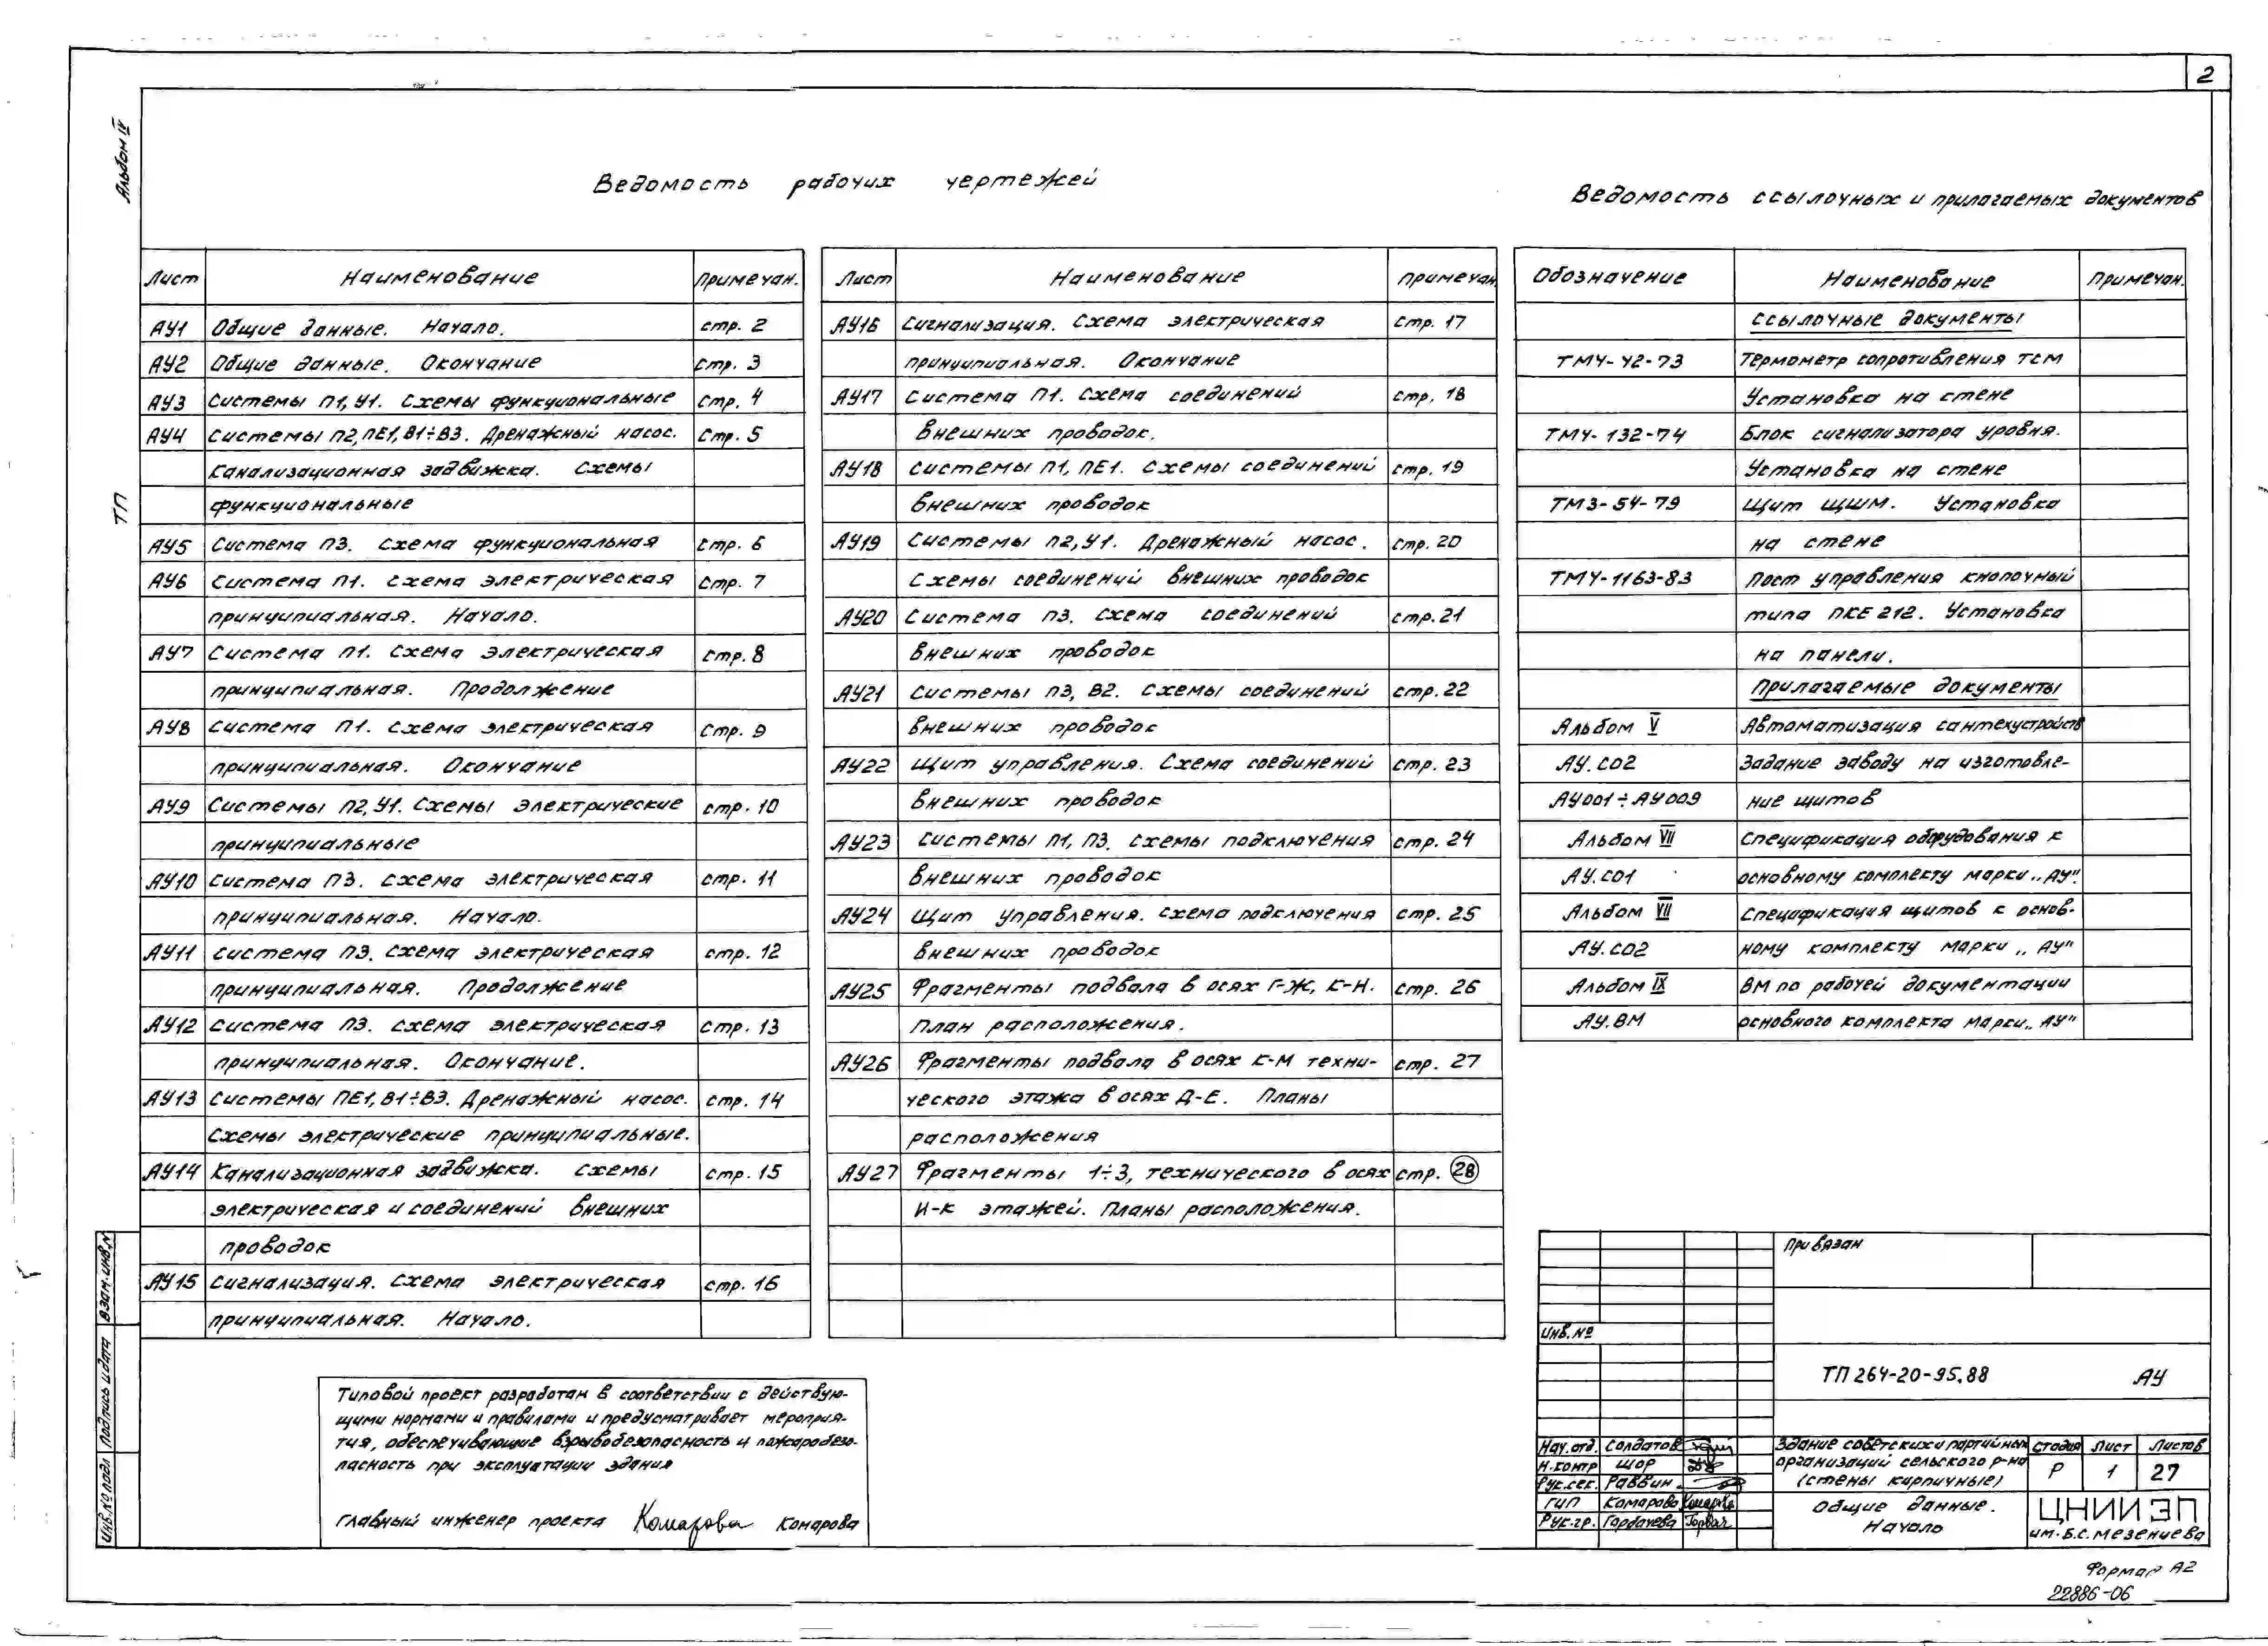 2
Альбом IV
ТП
Ведомость рабочих чертежей
Лист Наименование Примечан.
АУ1 Общие данные. Начало. стр. 2
АУ2 Общие данные. Окончание стр. 3
АУ3 Системы П1, У1. Схемы функциональные стр. 4
АУ4 Системы П2, ПЕ1, В1÷В3. Дренажный насос. стр. 5
Канализационная задвижка. Схемы
функциональные
АУ5 Система П3. Схема функциональная стр. 6
АУ6 Система П1. Схема электрическая стр. 7
принципиальная. Начало.
АУ7 Система П1. Схема электрическая стр. 8
принципиальная. Продолжение
АУ8 Система П1. Схема электрическая стр. 9
принципиальная. Окончание
АУ9 Системы П2, У1. Схемы электрические стр. 10
принципиальные
АУ10 Система П3. Схема электрическая стр. 11
принципиальная. Начало.
АУ11 Система П3. Схема электрическая стр. 12
принципиальная. Продолжение
АУ12 Система П3. Схема электрическая стр. 13
принципиальная. Окончание.
АУ13 Системы ПЕ1, В1÷В3. Дренажный насос. стр. 14
Схемы электрические принципиальные.
АУ14 Канализационная задвижка. Схемы стр. 15
электрическая и соединений внешних
проводок
АУ15 Сигнализация. Схема электрическая стр. 16
принципиальная. Начало.
Лист Наименование Примечан.
АУ16 Сигнализация. Схема электрическая стр. 17
принципиальная. Окончание
АУ17 Система П1. Схема соединений стр. 18
внешних проводок.
АУ18 Системы П1, ПЕ1. Схемы соединений стр. 19
внешних проводок
АУ19 Системы П2, У1. Дренажный насос. стр. 20
Схемы соединений внешних проводок
АУ20 Система П3. Схема соединений стр. 21
внешних проводок
АУ21 Системы П3, В2. Схемы соединений стр. 22
внешних проводок
АУ22 Щит управления. Схема соединений стр. 23
внешних проводок
АУ23 Системы П1, П3. Схемы подключения стр. 24
внешних проводок
АУ24 Щит управления. Схема подключения стр. 25
внешних проводок
АУ25 Фрагменты подвала в осях Г-Ж, К-Н. стр. 26
План расположения.
АУ26 Фрагменты подвала в осях К-М техни- стр. 27
ческого этажа в осях Д-Е. Планы
расположения
АУ27 Фрагменты 1÷3, технического в осях стр. 28
И-К этажей. Планы расположения.
Ведомость ссылочных и прилагаемых документов
Обозначение Наименование Примечан.
Ссылочные документы
ТМ4-42-73 Термометр сопротивления ТСМ
Установка на стене
ТМ4-132-74 Блок сигнализатора уровня.
Установка на стене
ТМ3-54-79 Щит ЩШМ. Установка
на стене
ТМ4-1163-83 Пост управления кнопочный
типа ПКЕ 212. Установка
на панели.
Прилагаемые документы
Альбом V Автоматизация сантехустройств
АУ.СО2 Задание заводу на изготовле-
АУ001÷АУ009 ние щитов
Альбом VII Спецификация оборудования к
АУ.СО1 основному комплекту марки „АУ".
Альбом VII Спецификация щитов к основ-
АУ.СО2 ному комплекту марки „АУ"
Альбом IX ВМ по рабочей документации
АУ.ВМ основного комплекта марки „АУ"
Типовой проект разработан в соответствии с действую-
щими нормами и правилами и предусматривает мероприя-
тия, обеспечивающие взрывобезопасность и пожаробезо-
пасность при эксплуатации здания
Главный инженер проекта Комарова Комарова
Взам. инв. №
Подпись и дата
Инв. № подл
Привязан
Инв. №
ТП 264-20-95.88 АУ
Нач. отд. Солдатов
Н. контр Шор
Рук. сек. Раввин
ГИП Комарова Комарова
Рук. гр. Горбачева
Здание советских и партийных
организаций сельского р-на
(стены кирпичные)
Стадия Лист Листов
Р 1 27
Общие данные.
Начало
ЦНИИЭП
им. Б.С. Мезенцева
Формат А2
22886-06